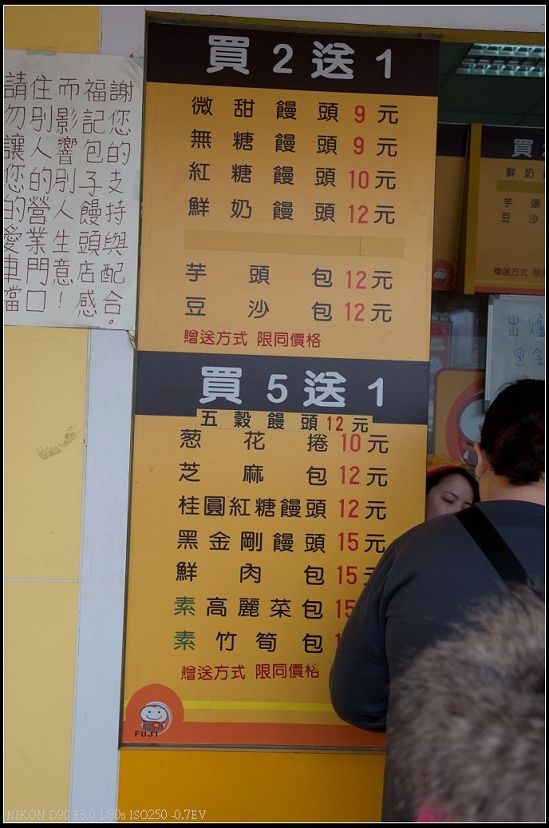 請勿讓您的愛車擋
住別人的營業門口
而影響別人生意！
福記包子饅頭店感
謝您的支持與配合。
買2送1
微甜饅頭9元
無糖饅頭9元
紅糖饅頭10元
鮮奶饅頭12元
芋頭包12元
豆沙包12元
贈送方式 限同價格
買5送1
五穀饅頭12元
葱花捲10元
芝麻包12元
桂圓紅糖饅頭12元
黑金剛饅頭15元
鮮肉包15元
素高麗菜包15
素竹筍包1
贈送方式 限同價格
FUJI
買
鮮奶
芋頭
豆沙
贈送方式
出爐
黑金
NIKON D90 F8.0 1/80s ISO250 -0.7EV